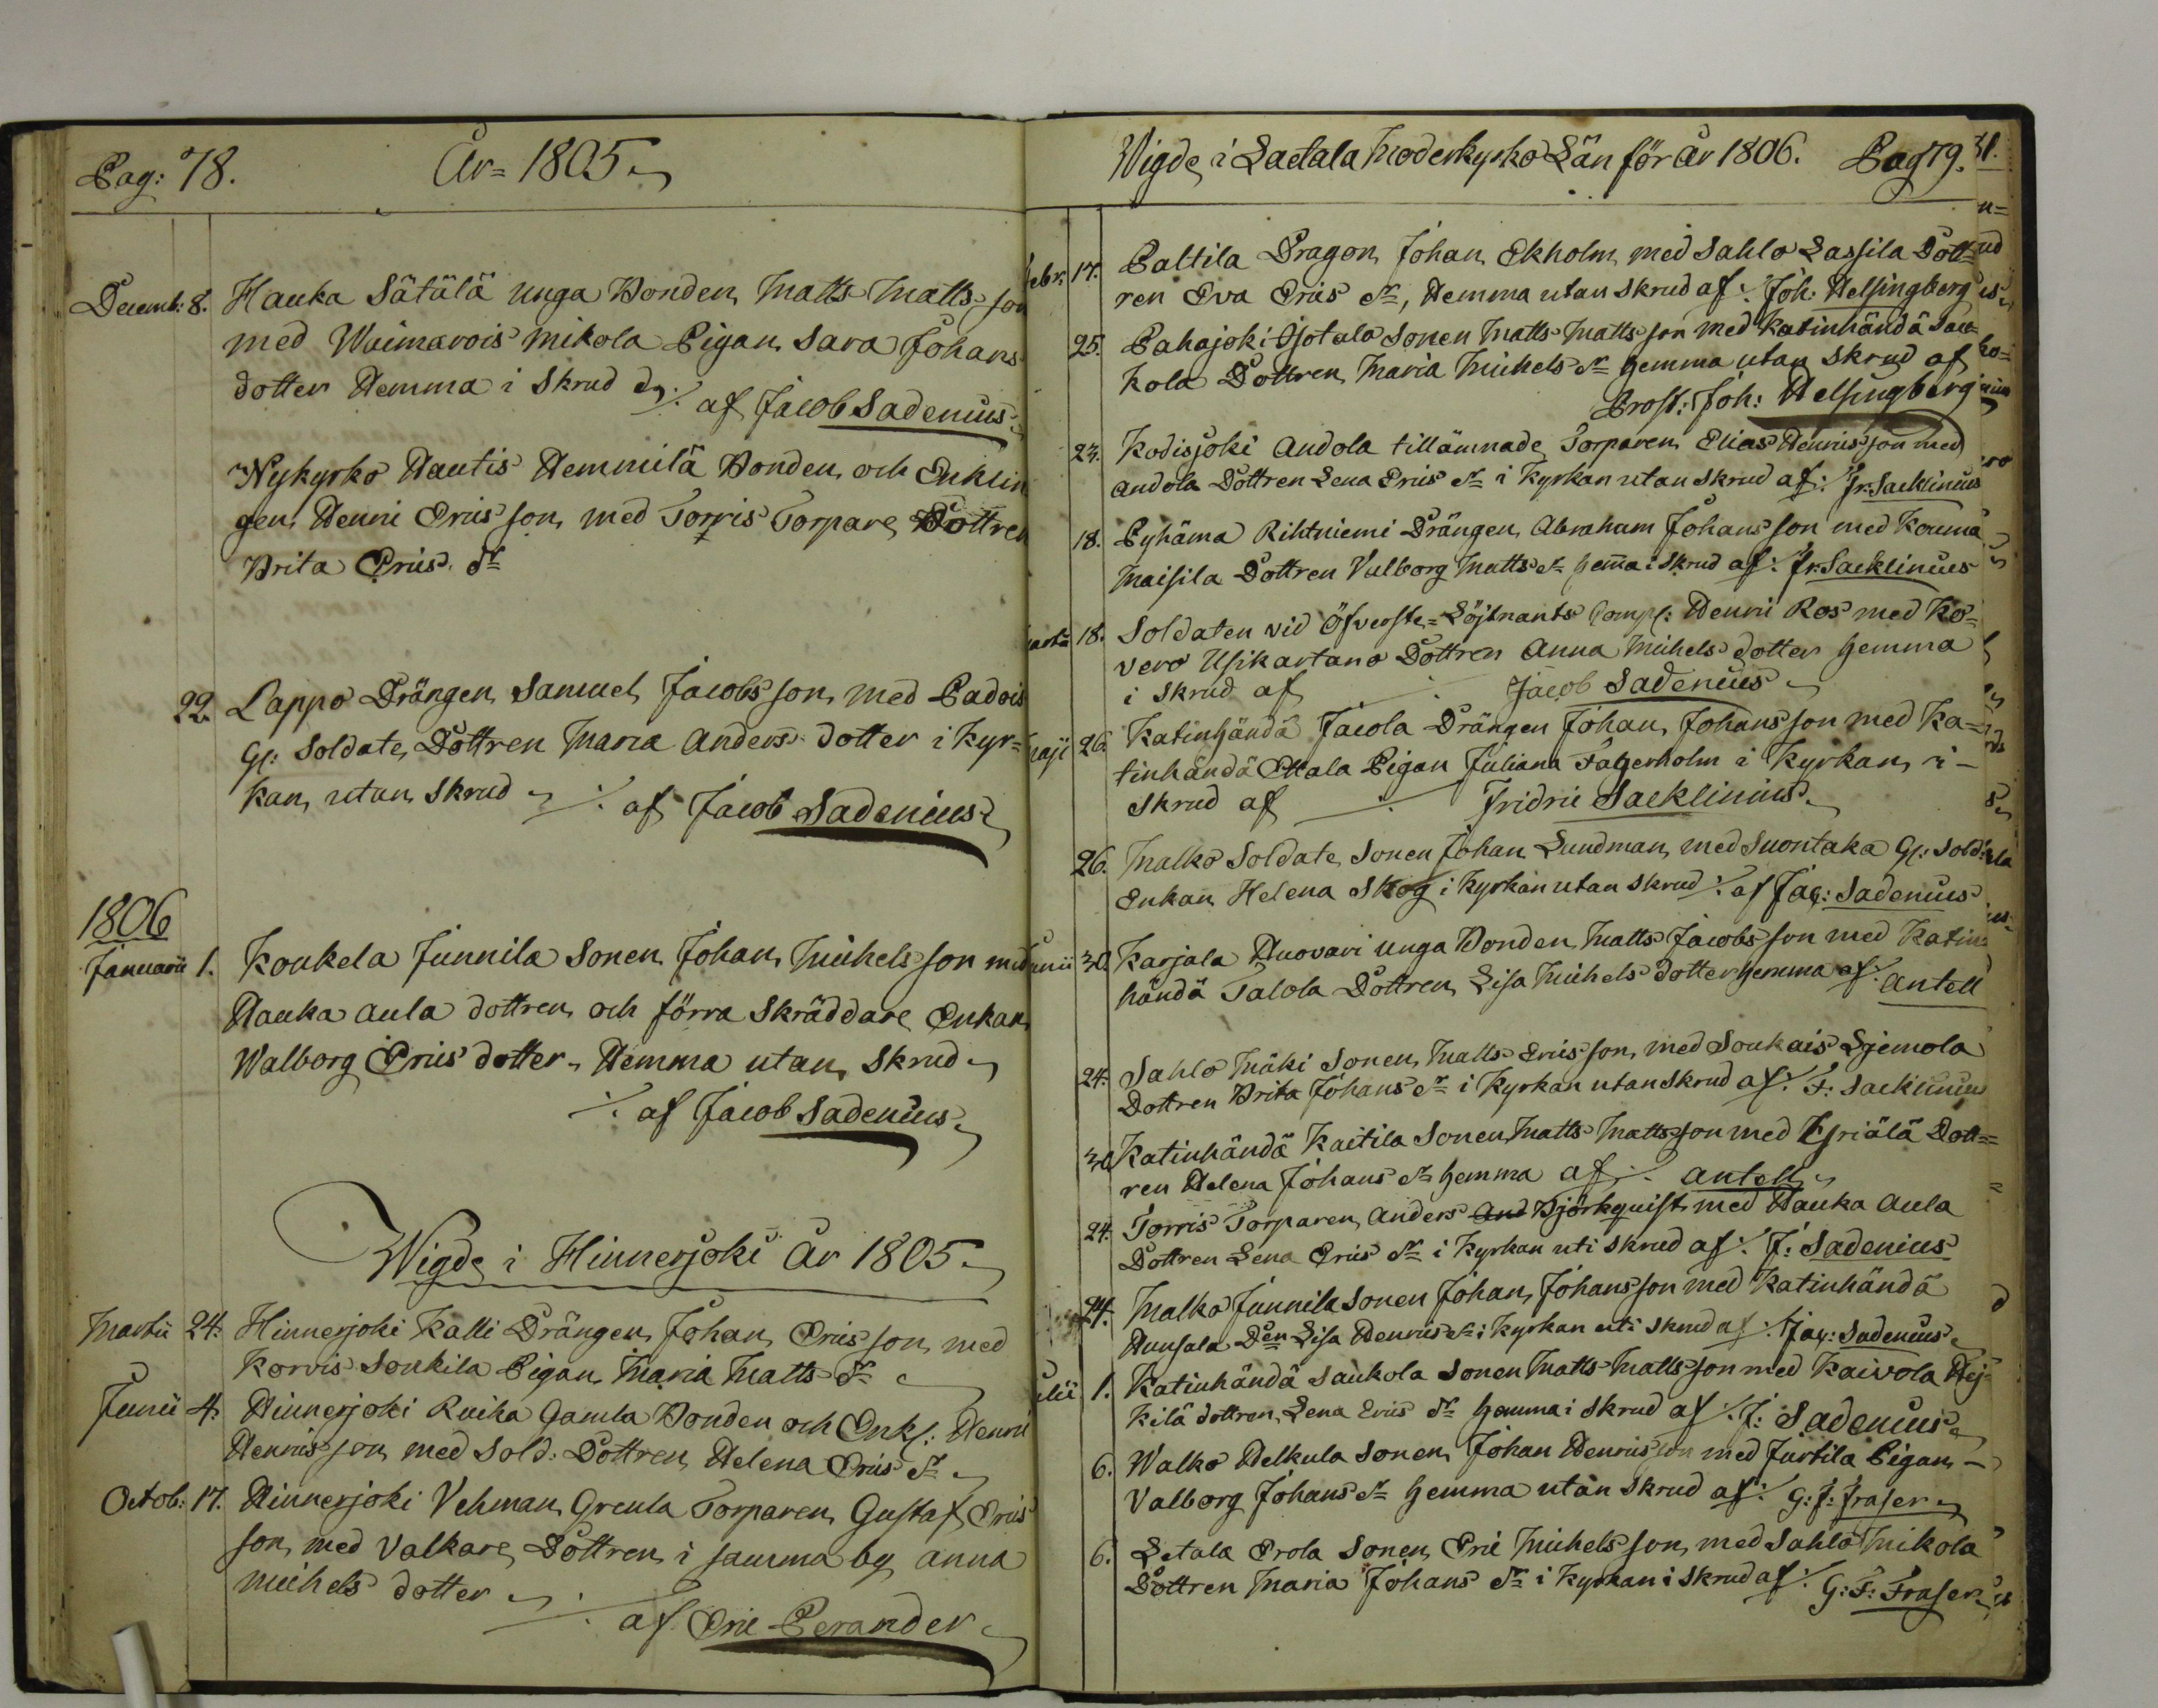 Pag: 78. År = 1805
Decemb: 8. Hauka Sätälä unga Bonden Matts Matts son
med Waimarois Mikola Pigan Sara Johans
dotter Hemma i Skrud
af Jacob Sadenius
Nykyrko Hautis Hemmilä Bonden och Enklin
gen Henric Erics son, med Torris Torpare Dottren
Brita Erics dr
22. Lappo Drängen Samuel Jacobs son, med Padois
Gl: Soldate Dottren Maria Anders dotter i Kyr=
kan, utan Skrud
af Jacob Sadenius
1806
Januarii 1. Koukela Junnila Sonen Johan Michels son med
Hauka Aula dottren och förra Skräddare Enkan
Walborg Erics dotter, Hemma utan Skrud
af Jacob Sadenius
Wigde i Hinnerjoki År 1805.
Martii 24. Hinnerjoki Kalli Drängen Johan Erics son med
Korvis Soukila Pigan Maria Matts dr
Junii 4. Hinnerjoki Ruika Gamla Bonden och Enkl: Henric
Henrics son med Sold: Dottren Helena Erics dr
Octob: 17. Hinnerjoki Vehman Greula Torparen Gustaf Erics
son, med Valkare Dottren i samma by Anna
Michels dotter
af Eric Perander
Wigde i Laetala Moderkyrko Län för År 1806. Pag 79.
Febr: 17. Paltila Dragon Johan Ekholm med Sahlo Lassila Dott=
ren Eva Erics dr, Hemma utan Skrud af Joh: Helsingberg
25. Pahajoki Ojotala Sonen Matts Matts son med Katinhändä Sau=
kola Dottren Maria Michels dr hemma utan Skrud af
Prost: Joh: Helsingberg
23. Kodisjoki Andola tillämnade Torparen Elias Henrics son med
Andola Dottren Lena Erics dr i Kyrkan utan Skrud af: Fr: Saeklinius
18. Pyhäma Rihtniemi Drängen Abraham Johans son med Kouma
Maisila Dottren Valborg Matts dr hema i Skrud af: Fr: Saeklinius
18. Soldaten vid Öfverste=Löjtnants Comp: Henric Ros med Ko=
vero Usikartano Dottren Anna Michels dotter hemma
i Skrud af Jacob Sadenius
Maji 26. Katinhändä Jacola Drängen Johan Johans son med Ka=
tinhändä Ettala Pigan Juliana Fagerholm i Kyrkan, i
Skrud af Fridric Saeklinius
26. Malko Soldate Sonen Johan Lundman med Suontaka Gl: Sold:
Enkan Helena Skog i Kyrkan utan Skrud af Jac: Sadenius
Junii 30. Karjala Huovari unga Bonden Matts Jacobs son med Katin
händä Talola Dottren Lisa Michels dotter hemma af Antell
24. Sahlo Mäki Sonen Matts Erics son, med Soukais Sjemola
Dottren Brita Johans dr i Kyrkan utan Skrud af: F: Saeklinius
30 Katinhändä Kaitila Sonen Matts Matts son med Yriälä Dott=
ren Helena Johans dr hemma af Antell
24. Torris Torparen Anders And Björkquist med Hauka Aula
Dottren Lena Erics dr i Kyrkan uti Skrud af: J: Sadenius
24. Malko Junnila Sonen Johan Johans son med Katinhändä
Hunsala Den Lisa Henrics dr i Kyrkan uti Skrud af: Jac: Sadenius
Julii 1. Katinhändä Saukola Sonen Matts Matts son med Kaivola Hej=
kilä dottren Lena Erics dr hemma i Skrud af J: Sadenius
6. Walko Helkula Sonen Johan Henrics son med Jurtila Pigan
Valborg Johans dr hemma utan Skrud af G: F: Fraser
6. Letala Erola Sonen Eric Michels son, med Sahlo Mikola
Dottren Maria Johans dr i Kyrkan i Skrud af G: F: Fraser